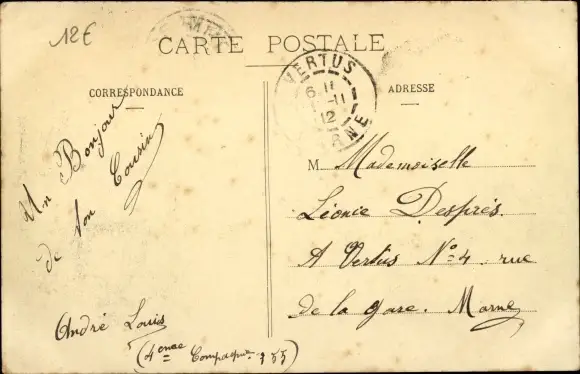 12€
CARTE POSTALE
CORRESPONDANCE
ADRESSE
VERTUS
6 11
-11
12
MARNE
Un Bonjour
de ton Cousin
André Louis
(4eme Compagnie 155)
M. Mademoiselle
Léonie Desprès.
A Vertus No 4. rue
de la gare. Marne